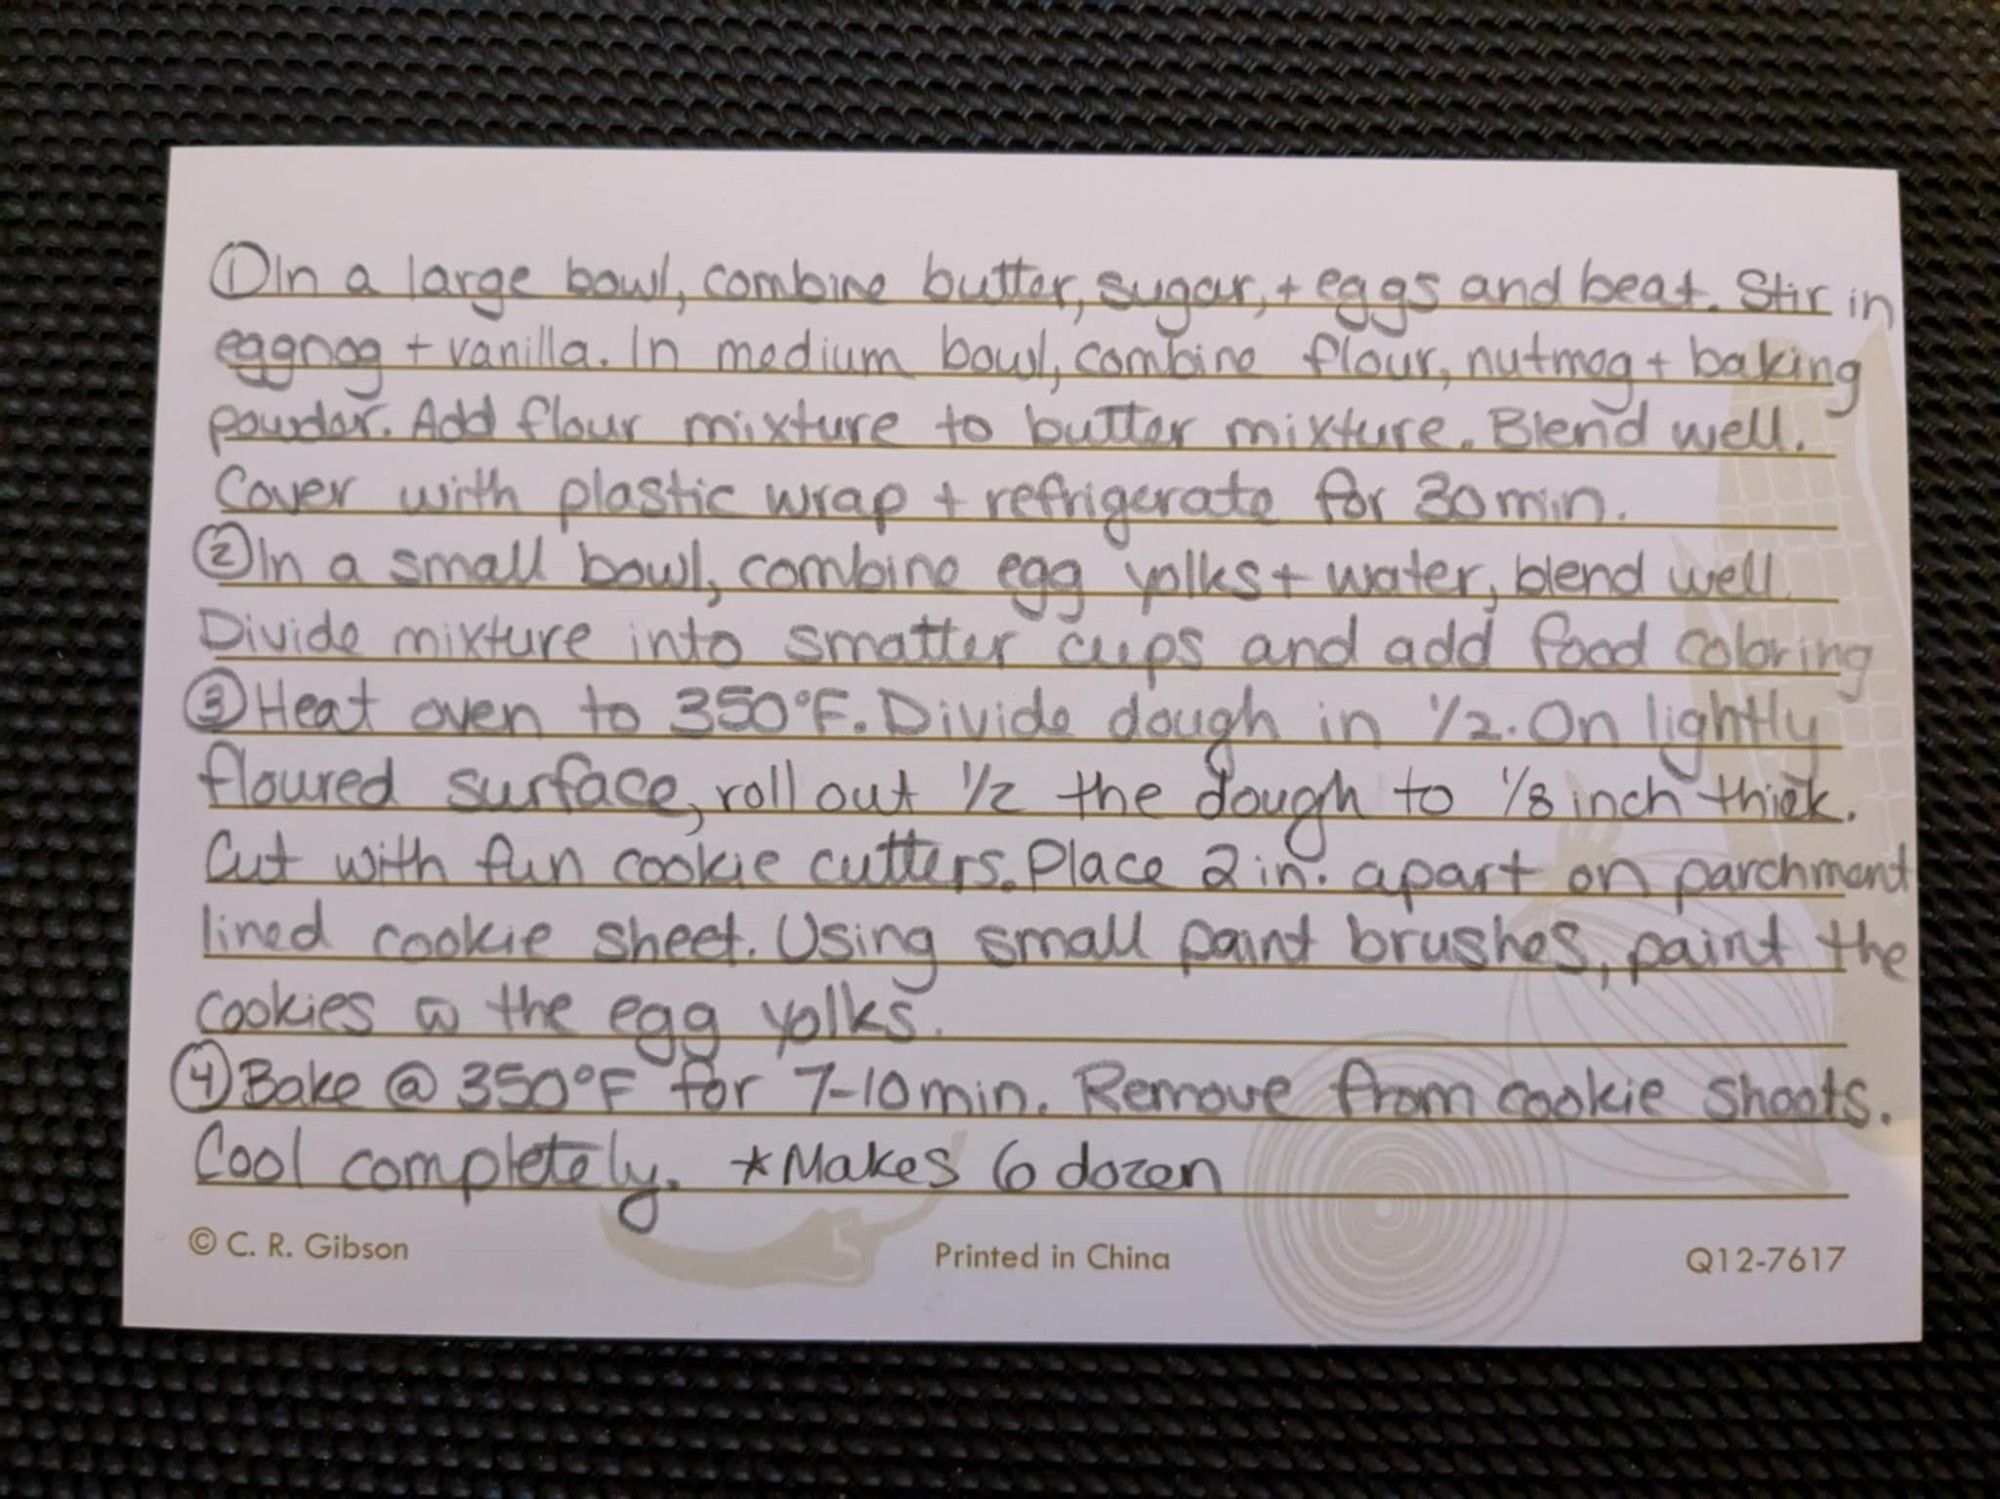 ①In a large bowl, combine butter, sugar, + eggs and beat. Stir in
eggnog + vanilla. In medium bowl, combine flour, nutmeg + baking
powder. Add flour mixture to butter mixture. Blend well.
Cover with plastic wrap + refrigerate for 30 min.
②In a small bowl, combine egg yolks + water, blend well.
Divide mixture into smatter cups and add food coloring
③Heat oven to 350°F. Divide dough in 1/2. On lightly
floured surface, roll out 1/2 the dough to 1/8 inch thick.
Cut with fun cookie cutters. Place 2 in. apart on parchment
lined cookie sheet. Using small paint brushes, paint the
cookies w the egg yolks.
④Bake @ 350°F for 7-10 min. Remove from cookie sheets.
Cool completely. *Makes 6 dozen
© C. R. Gibson
Printed in China
Q12-7617